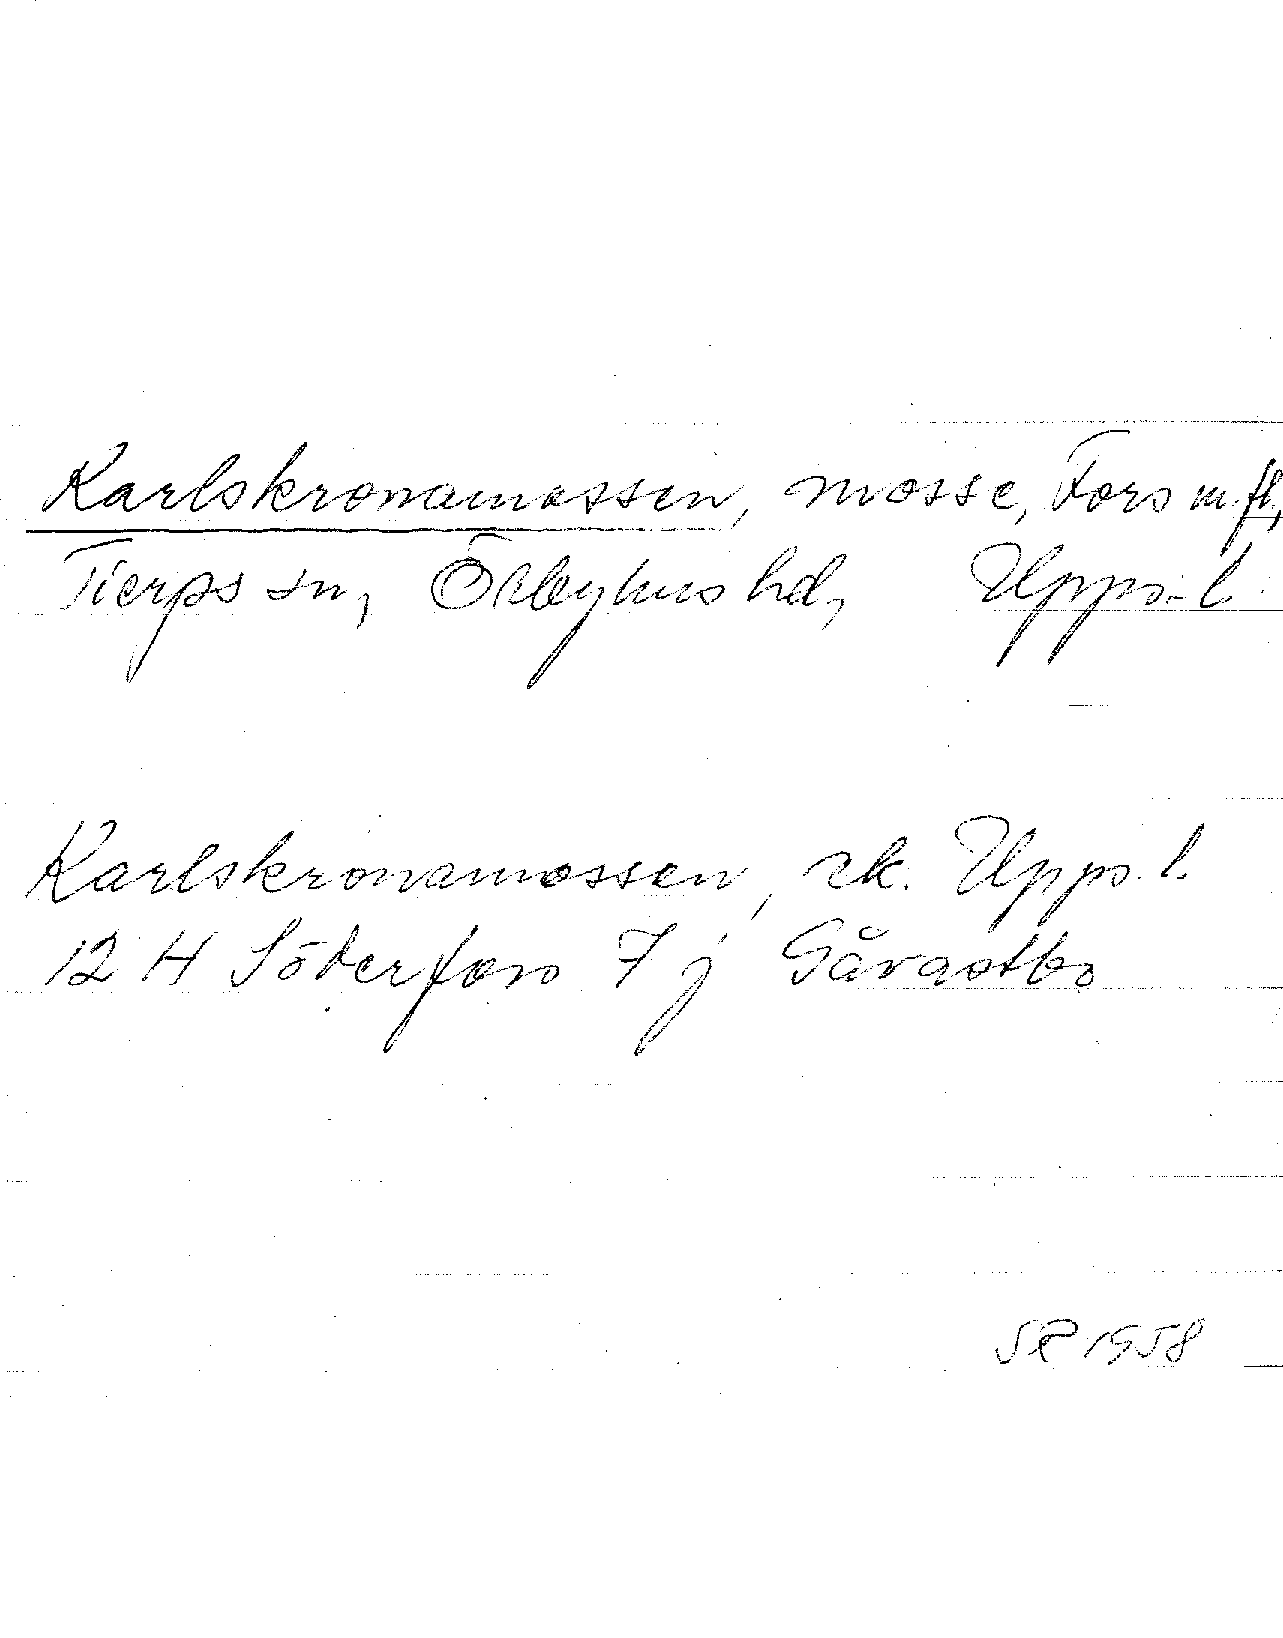 Karlskronamossen, mosse, Fors m.fl,
Tierps sn, Örbyhus hd, Upps. l.
Karlskronamossen, ek. Upps. l.
12 H Söderfors 7 j Gårastbo
SR 1958